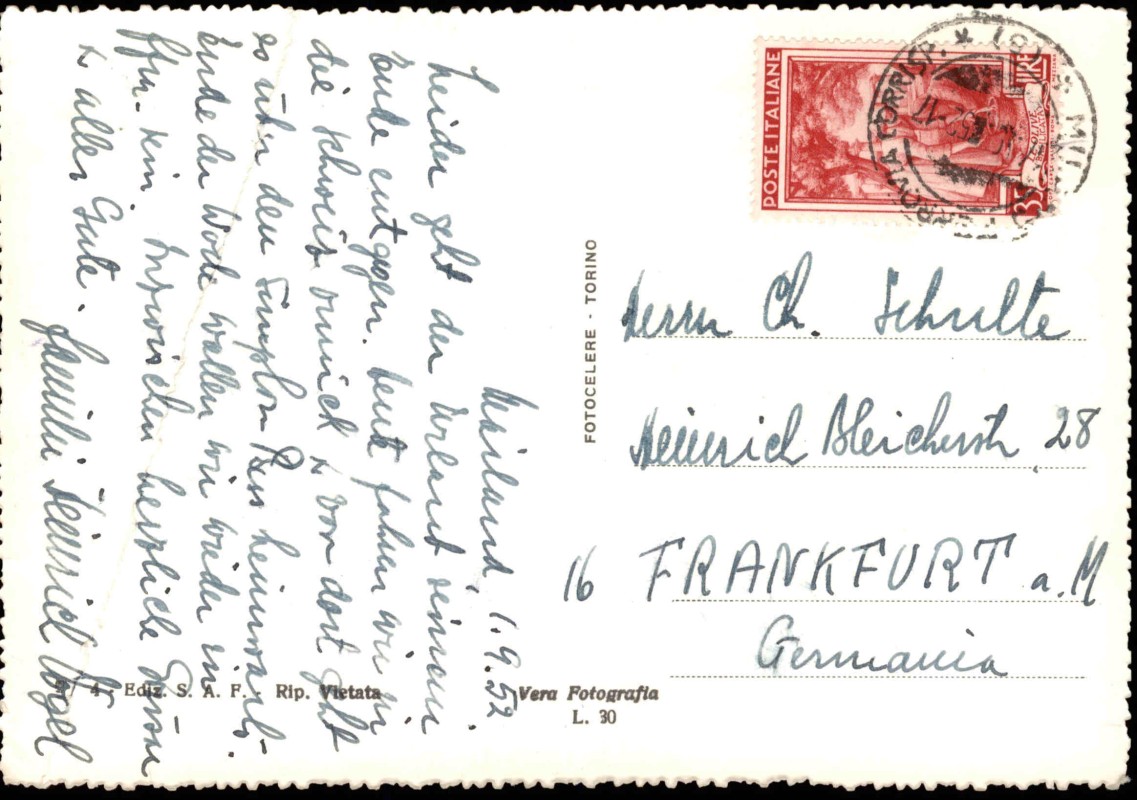 Mailand, 1.9.52
Leider geht der Urlaub seinem
Ende entgegen. Heute fahren wir in
die Schweiz zurück & von dort geht
es über den Simplon Pass heimwärts.
Ende der Woche wollen wir wieder in
Ffm. sein. Inzwischen herzliche Grüsse
& alles Gute.
Familie Heinrich Vogel
4 Ediz. S. A. F. - Rip. Vietata
Vera Fotografia
L. 30
FOTOCELERE - TORINO
POSTE ITALIANE
LIRE
35
FERROVIA CORRISP. * (8) * MILANO
Herrn Ch. Schulte
Heinrich Bleicherstr. 28
16 FRANKFURT a. M
Germania